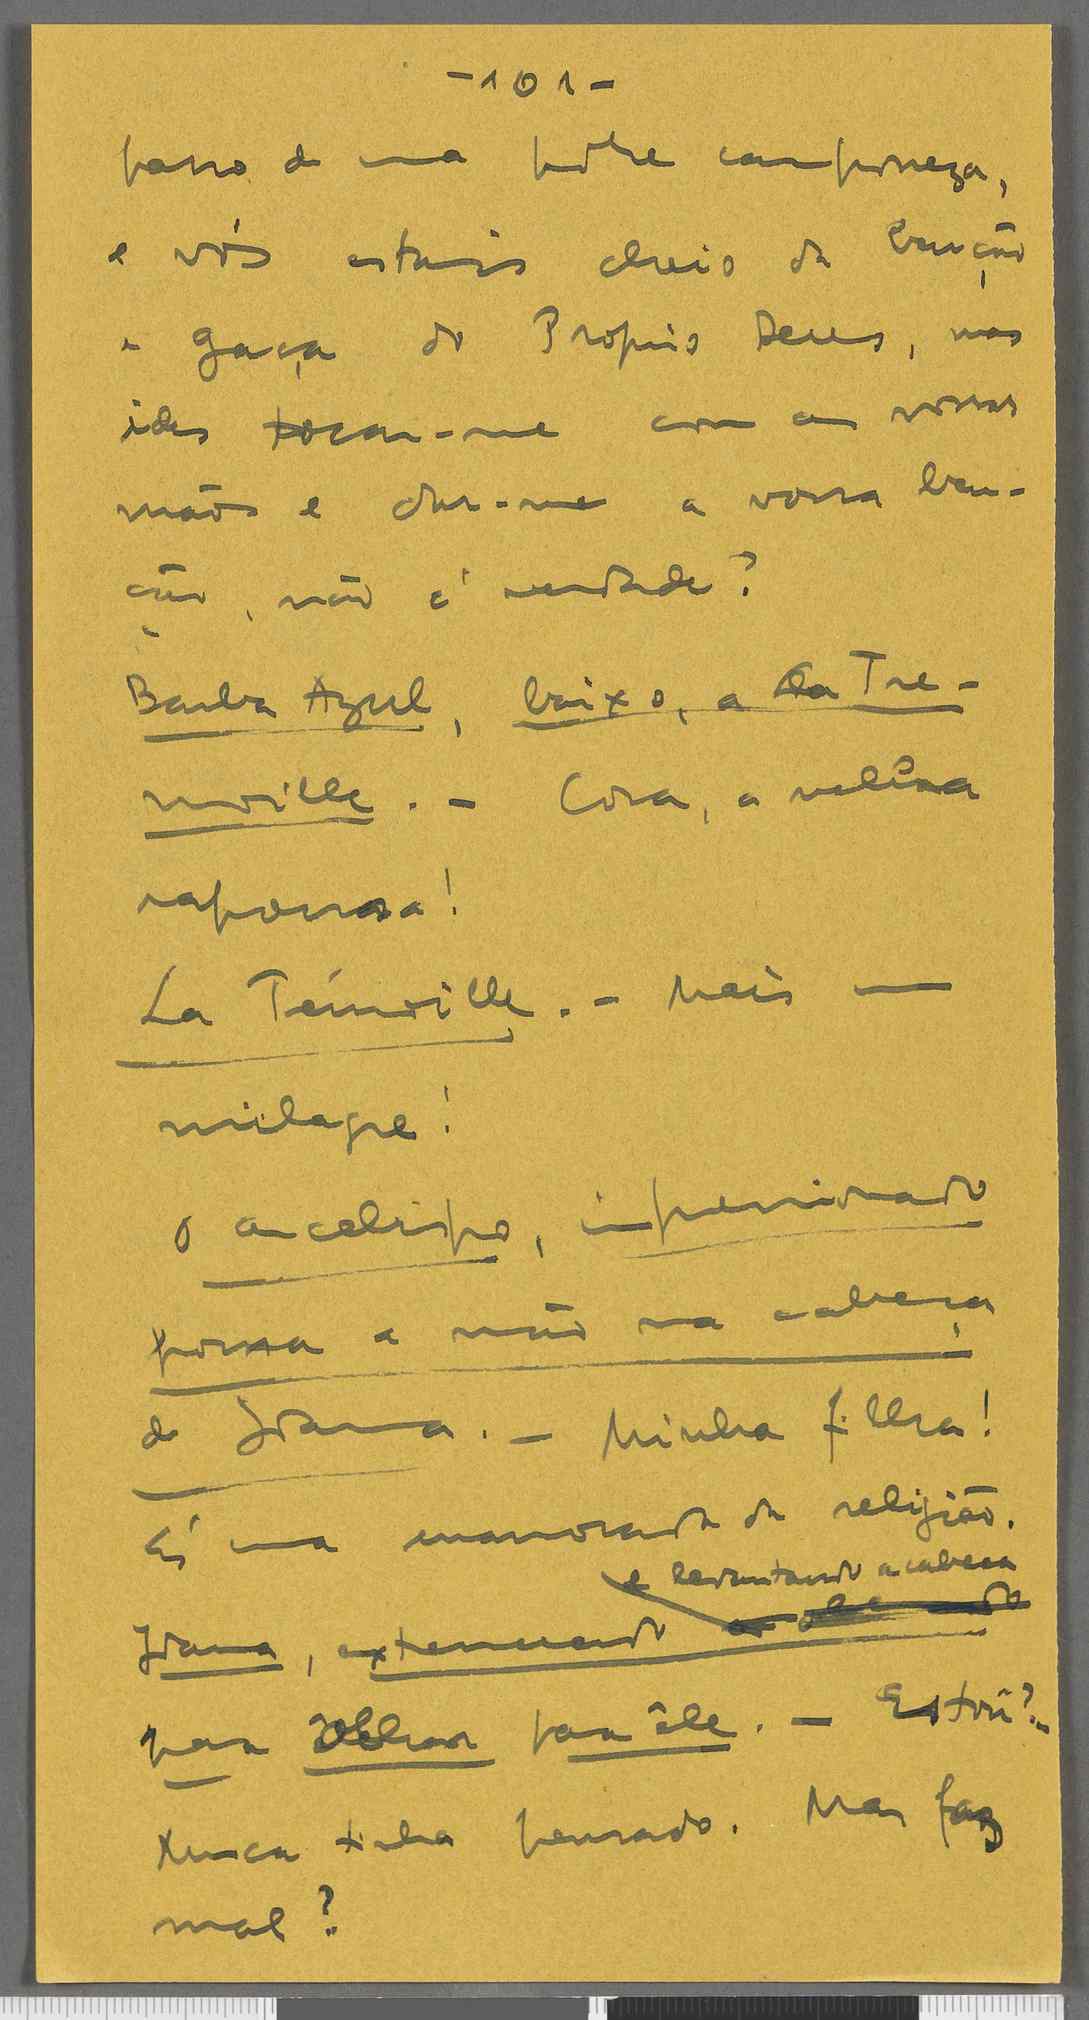 -101-
passo de uma pobre camponeza,
e vós estais cheio da benção
e gaça do Proprio Deus, mas
ides tocar-me com as vossas
mãos e dar-me a vossa ben-
ção, não é verdade?
Barba Azul, baixo, a La Tre-
moille. - Cora, a velha
raposa!
La Trémoille. - Mais um
milagre!
O arcebispo, impressionado
pousa a mão na cabeça
de Joana. - Minha filha!
És uma enamorada da religião.
e levantando a cabeça
Joana, extenuando
para olhar para êle. - Estou?..
Nunca tinha pensado. Mas faz
mal?